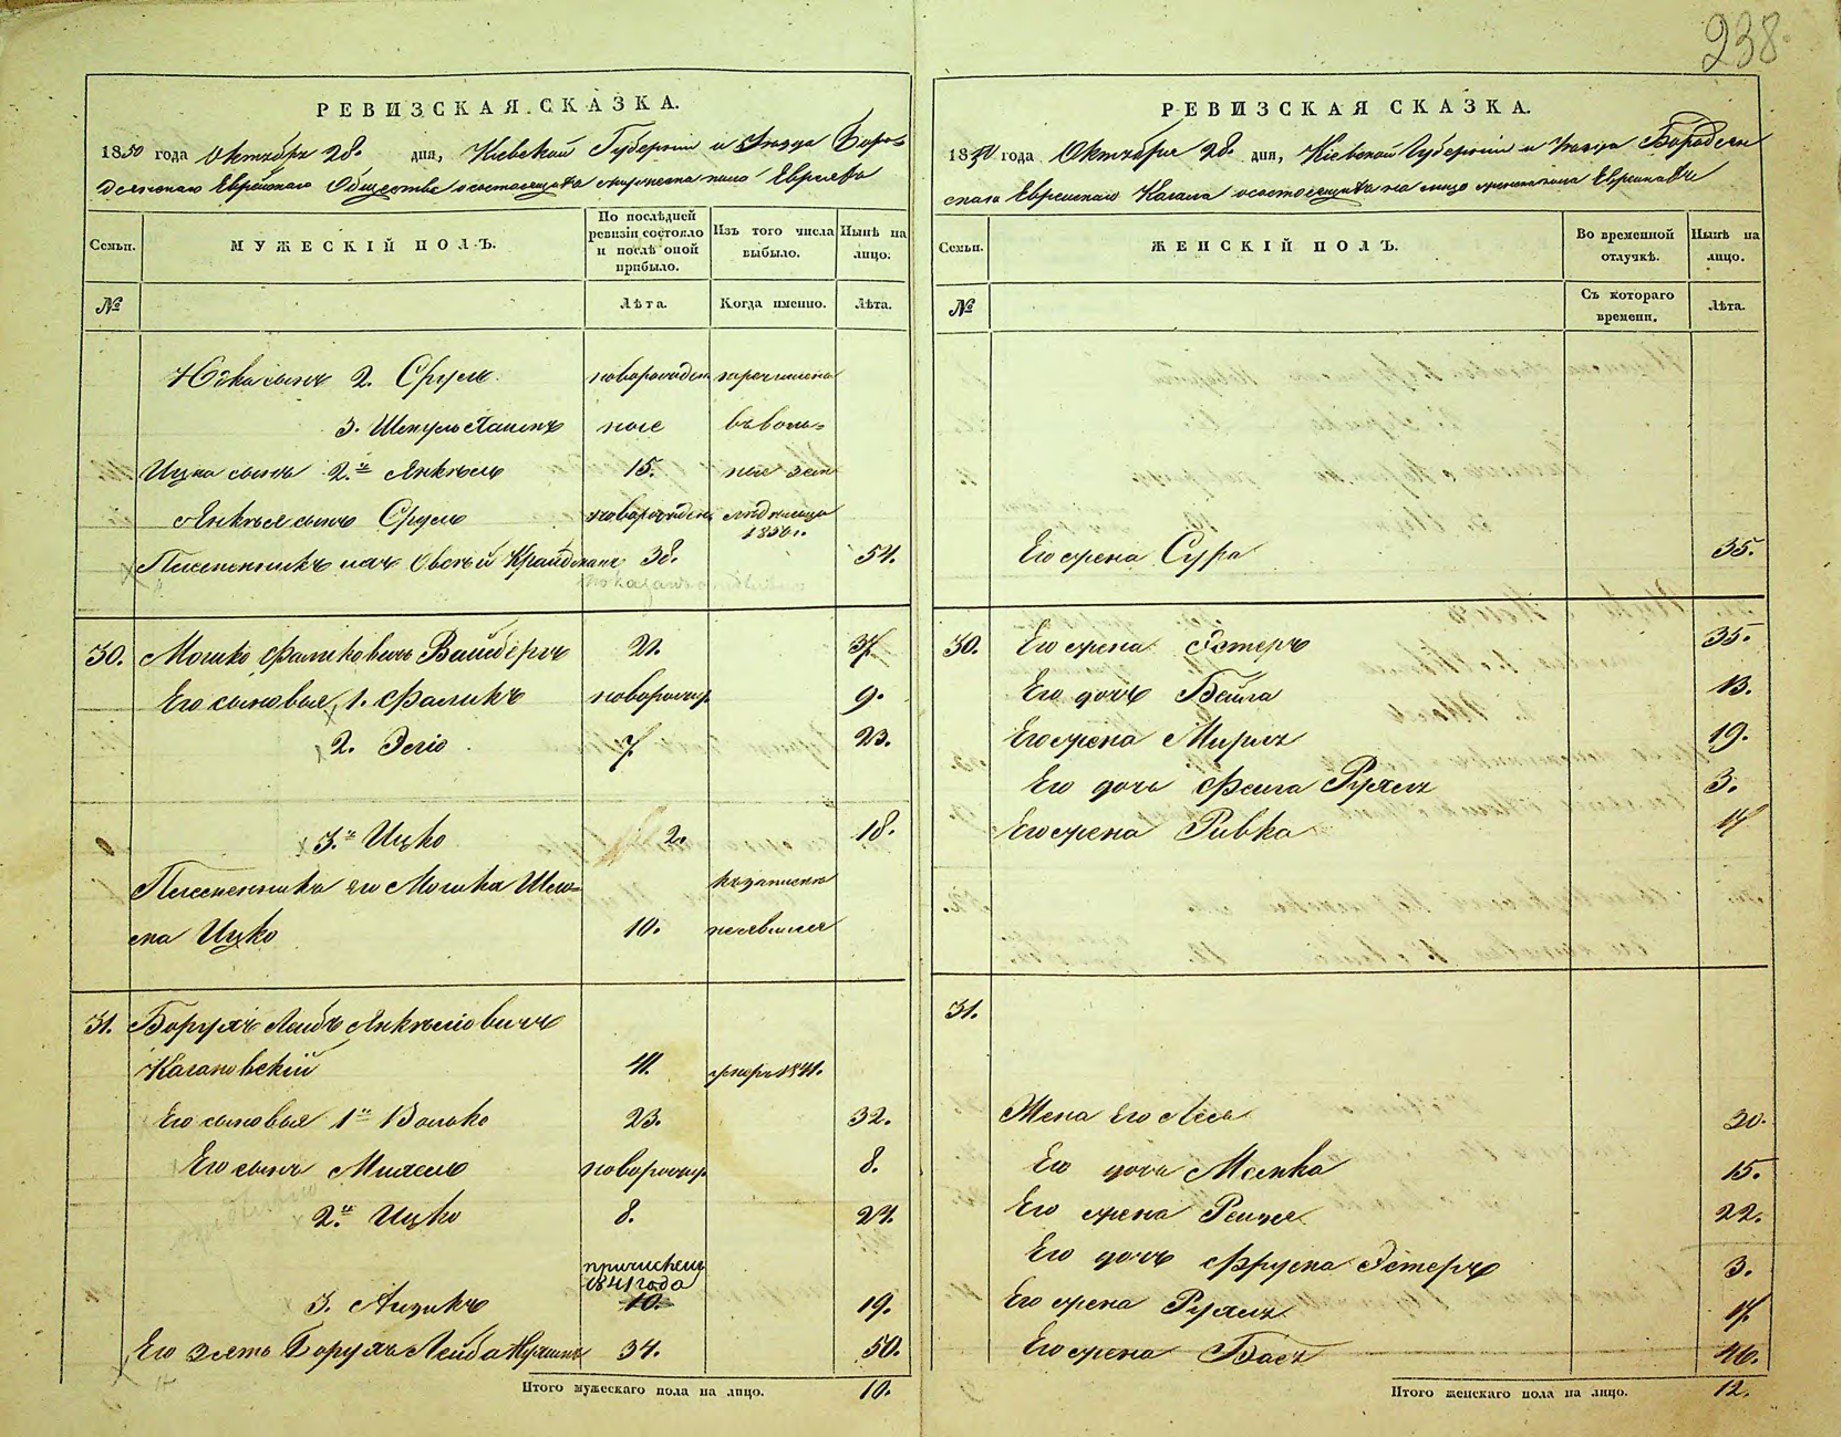 238.
РЕВИЗСКАЯ СКАЗКА.
1850 года Октября 28. дня, Кіевской Губерніи и Уѣзда Боро-
дянскаго Еврейскаго Общества о состоящихъ мужеска пола Евреевъ
Семьи.
МУЖЕСКІЙ ПОЛЪ.
По послѣдней ревизіи состояло и послѣ оной прибыло.
Изъ того числа выбыло.
Нынѣ на лицо.
№
Лѣта.
Когда именно.
Лѣта.
сынъ 2. Сруль новорожден перечислены
3. ные въ воль-
Ицка сынъ 2й Янкель 15. ные
Янкеля сынъ Сруль новорожден
1850 г.
Племенникъ Овсѣй 38. 54.
30. Мошко Фаликовичъ Вайсбергъ 21. 37.
Его сыновья 1. Фаликъ новорожд. 9.
2. 7. 23.
3й Ицко 2. 18.
Племенникъ его Мошка Шлео- къ запискѣ
ма Ицко 10. неявился
31. Борухъ Лейбъ Янкелiовичъ
Кагановскій 41. умеръ 1841.
Его сыновья 1й Волько 23. 32.
Его сынъ новорожд. 8.
2й Ицко 8. 24.
причислен
1841 года
3. Айзикъ 10. 19.
Его зять Борухъ Лейба 34. 50.
Итого мужескаго пола на лицо. 10.
РЕВИЗСКАЯ СКАЗКА.
1850 года Октября 28. дня, Кіевской Губерніи и Уѣзда Бородян
скаго Еврейскаго Кагала о состоящихъ на лицо женска пола Евреинахъ
Семьи.
ЖЕНСКІЙ ПОЛЪ.
Во временной отлучкѣ.
Нынѣ на лицо.
№
Съ котораго времени.
Лѣта.
Его жена Сура 35.
30. Его жена Эстеръ 35.
Его дочь Бейла 13.
Его жена Мирля 19.
Его дочь Фейга Рухля 3.
Его жена Ривка 17
31.
Жена его Лея 30.
Его дочь 15.
Его жена 22.
Его дочь Фрума Эстеръ 3.
Его жена Рухля 17.
Его жена Бася 46.
Итого женскаго пола на лицо. 12.